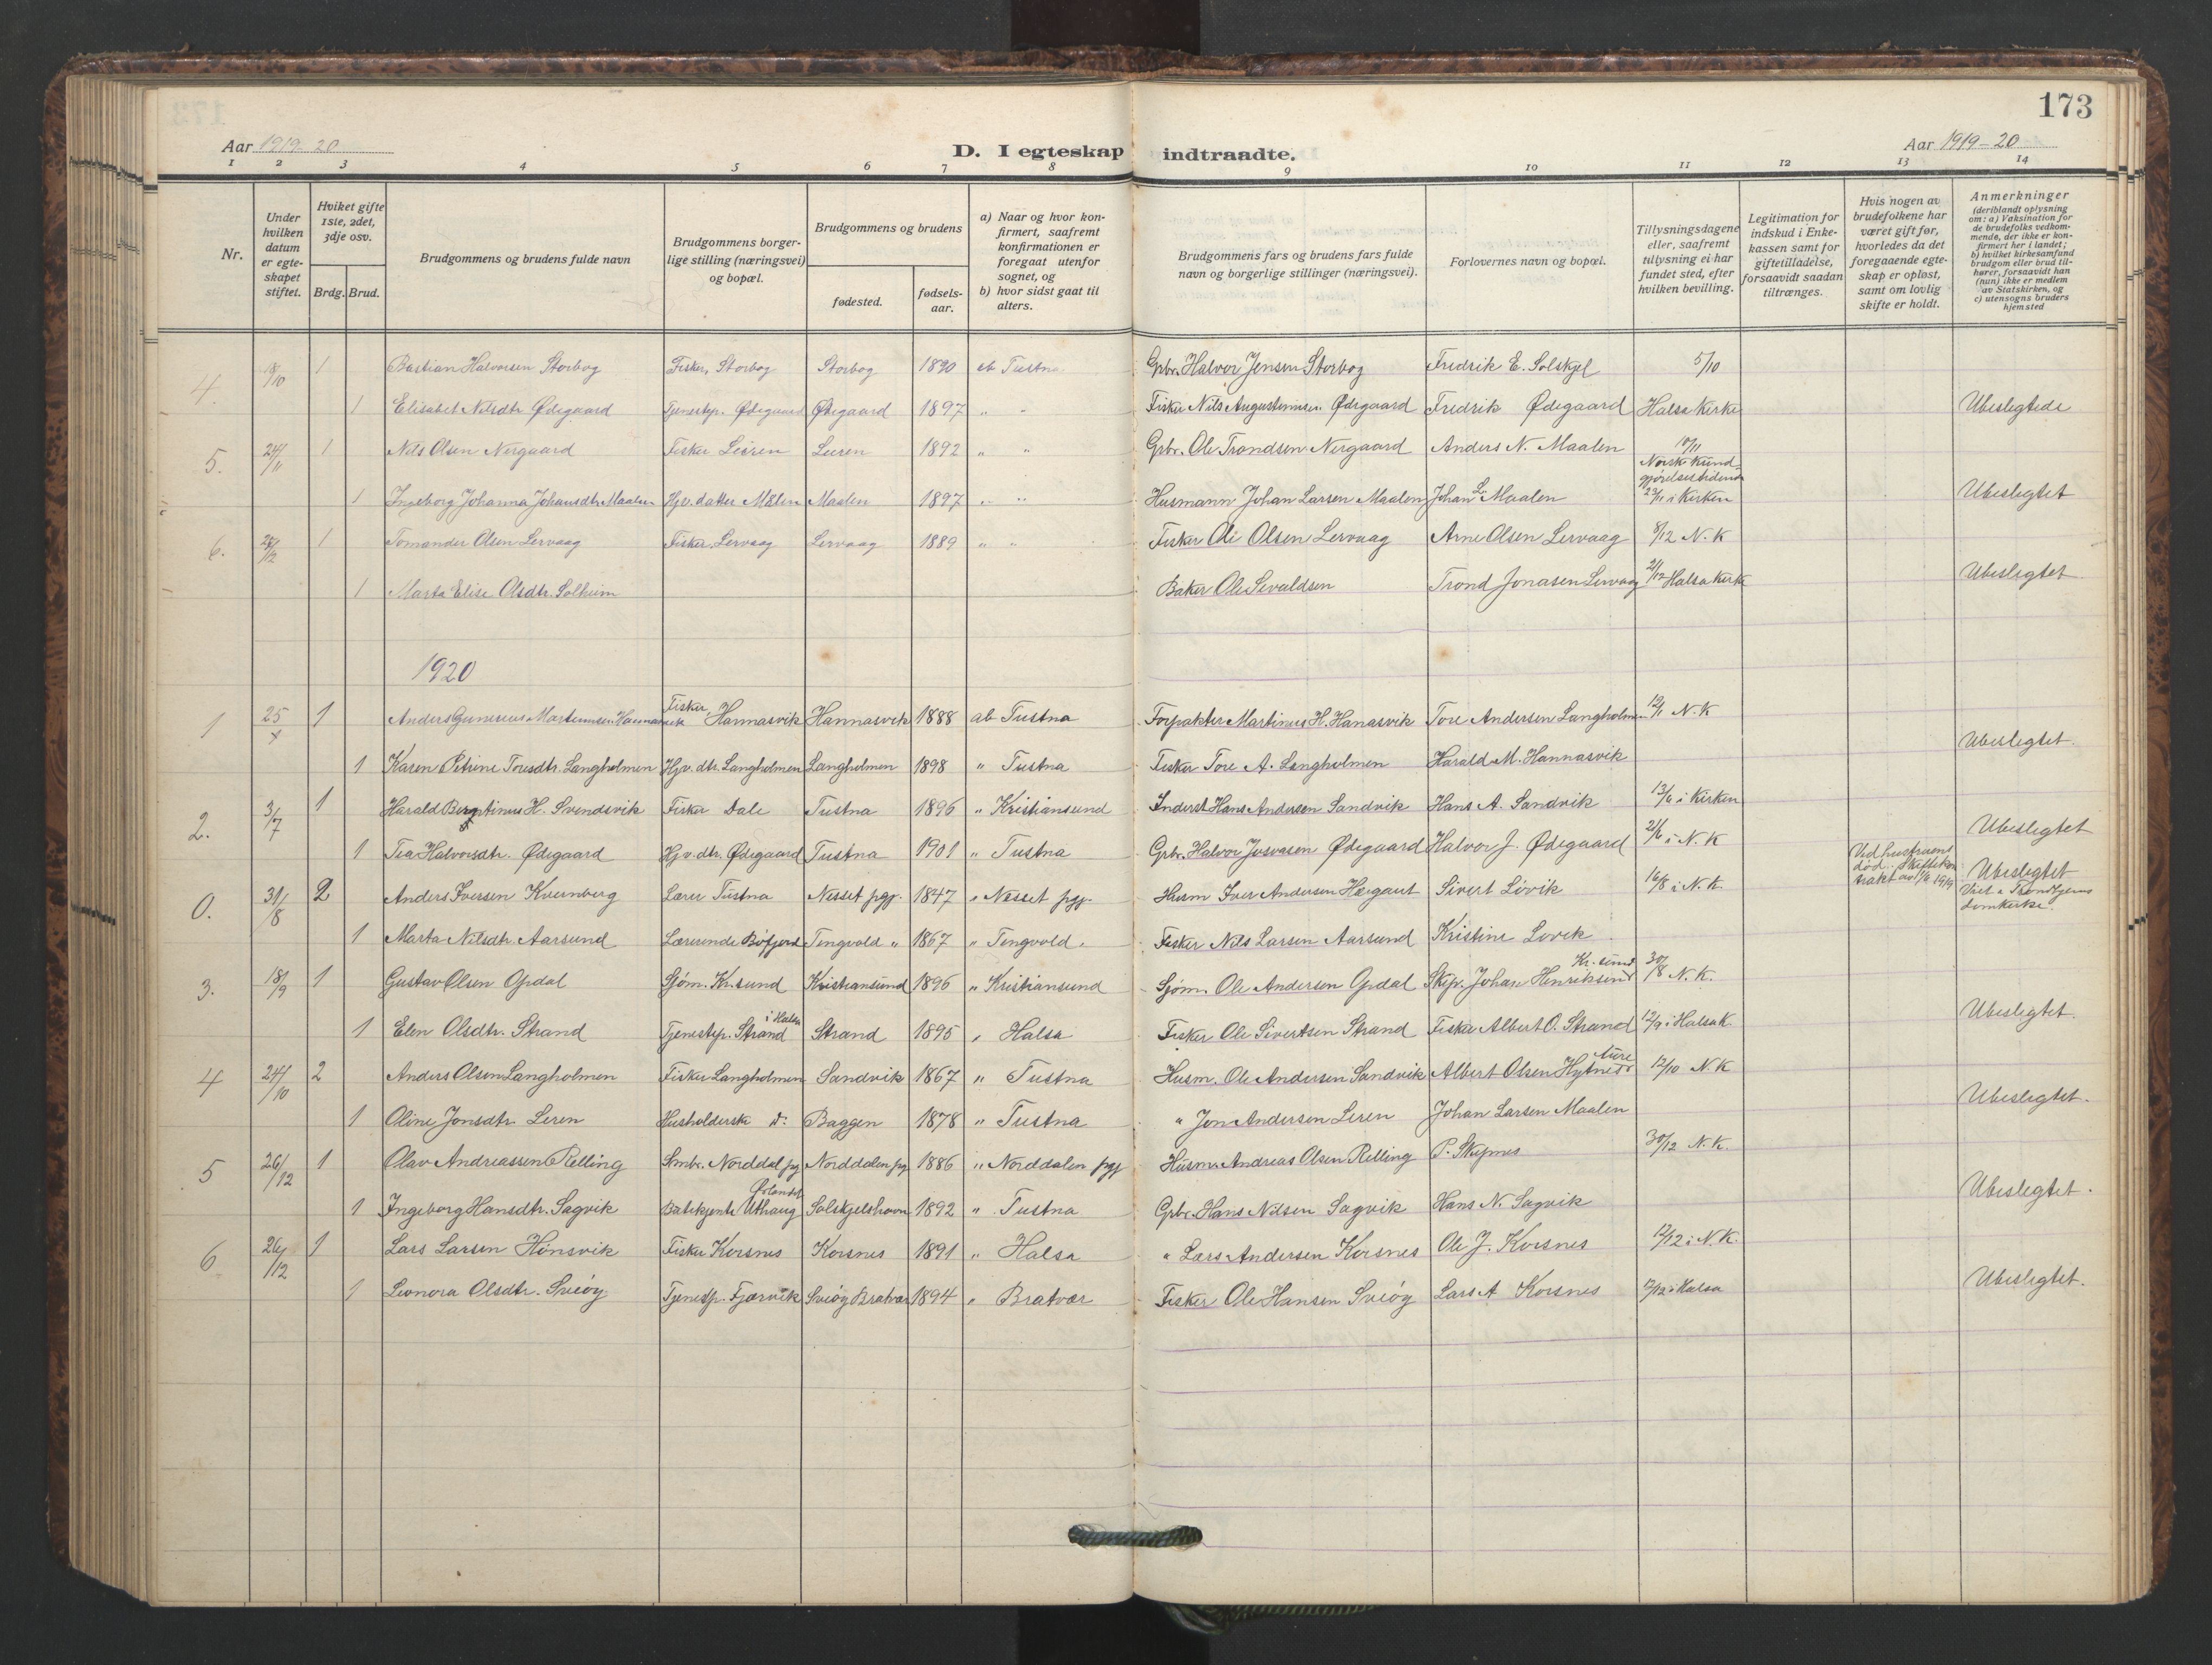 173
Aar 1919-20 D. I egteskap indtraadte. Aar 1919-20
1 2 3 4 5 6 7 8 9 10 11 12 13 14
Nr.
Under hvilken datum er egteskapet stiftet.
Hvilket gifte 1ste, 2det, 3dje osv.
Brdg. Brud.
Brudgommens og brudens fulde navn
Brudgommens borgerlige stilling (næringsvei) og bopæl.
Brudgommens og brudens
fødested. fødselsaar.
a) Naar og hvor konfirmert, saafremt konfirmationen er foregaat utenfor sognet, og
b) hvor sidst gaat til alters.
Brudgommens fars og brudens fars fulde navn og borgerlige stillinger (næringsvei).
Forlovernes navn og bopæl.
Tillysningsdagene eller, saafremt tillysning ei har fundet sted, efter hvilken bevilling.
Legitimation for indskud i Enkekassen samt for giftetilladelse, forsaavidt saadan tiltrænges.
Hvis nogen av brudefolkene har været gift før, hvorledes da det foregaaende egteskap er opløst, samt om lovlig skifte er holdt.
Anmerkninger (deriblandt oplysning om: a) Vaksination for de brudefolks vedkommende, der ikke er konfirmert her i landet; b) hvilket kirkesamfund brudgom eller brud tilhører, forsaavidt han (hun) ikke er medlem av Statskirken, og c) utensogns bruders hjemsted
4. 18/10 1 Bastian Halvorsen Storbog Fisker, Storbog Storbog 1890 ab Tustna Gbr. Halvor Jensen Storbog Fredrik E. Solskjel 5/10
1 Elisabet Nilsdtr Ødegaard Tjenestep. Ødegaard Ødegaard 1897 " " Fisker Nils Augustinusen Ødegaard Fredrik Ødegaard Halsa Kirke Ubeslegtede
5. 24/11 1 Nils Olsen Nergaard Fisker Leiren Leiren 1892 " " Gbr. Ole Trondsen Nergaard Anders N. Maalen 10/11 Norsk kundgjørelsestidende
1 Ingeborg Johanna Johansdtr Maalen Hjv. datter Målen Maalen 1897 " " Husmann Johan Larsen Maalen Johan L. Maalen 23/11 i Kirken Ubeslegtet
6. 28/12 1 Tomander Olsen Lervaag Fisker Lervaag Lervaag 1889 " " Fisker Ole Olsen Lervaag Arne Olsen Lervaag 8/12 N. K
1 Marta Elise Olsdtr. Solheim Baker Ole Sevaldsen Trond Jonasen Lervaag 21/12 Halsa Kirk Ubeslegtet
1920
1 25/ 1 Anders Martinusen Hannasvik Fisker Hannasvik Hannasvik 1888 ab Tustna Forpakter Martinus H. Hanasvik Tore Andersen Langholmen 12/1 N.K
1 Karen Petrine Toresdtr. Langholmen Hjv. dtr. Langholmen Langholmen 1898 " Tustna Fisker Tore A. Langholmen Harald M. Hannasvik Ubeslegtet.
2. 3/7 1 Harald H. Svendsvik Fisker Dale Tustna 1896 " Kristiansund Inderst Hans Andersen Sandvik Hans A. Sandvik 13/6 i Kirken
1 Tea Halvorsdtr. Ødegaard Hjv. dtr. Ødegaard Tustna 1901 " Tustna Gbr. Halvor Ødegaard Halvor J. Ødegaard 21/6 i N. K Ubeslegtet
0. 31/8 2 Anders Iversen Kvernberg Lærer Tustna Nesset pgj. 1847 " Nesset pgj. Husm Iver Andersen Sivert Lövik 16/8 i N. K. Ved hustruens død. 1919 Ubeslegtet Viet i Trondhjems domkirke.
1 Marta Nilsdtr. Aarsund Lærerinde Bøfjord Tingvold " 1867 " Tingvold " Fisker Nils Larsen Aarsund Kristine Lovik
3. 18/9 1 Gustav Olsen Opdal Sjøm. Kr.sund Kristiansund 1896 " Kristiansund Sjøm. Ole Andersen Opdal Skip. Johan Henriksen Kr. sund 30/8 N. K.
1 Elen Olsdtr. Strand Tjenestep. Strand i Halsa Strand 1895 " Halsa Fisker Ole Sivertsen Strand Fisker Albert O. Strand 12/9 i Halsa K. Ubeslegtet.
4 24/10 2 Anders Olsen Langholmen Fisker Langholmen Sandvik 1867 " Tustna Husm. Ole Andersen Sandvik Albert Olsen Hytnes Aure 12/10 N. K
1 Oline Jonsdtr. Leren Husholderske Baggen 1878 " Tustna " Jon Andersen Leren Johan Larsen Maalen Ubeslegtet.
5 26/12 1 Olav Andreassen Relling Smbr. Norddal pg Norddalen pg 1886 " Norddalen pgj Husm. Andreas Olsen Relling P. Skipnes 30/12 N. K.
1 Ingeborg Hansdtr. Sagvik Uthaug Ørlandet Solskjelshavn 1892 " Tustna Gbr. Hans Nilsen Sagvik Hans N. Sagvik Ubeslegtet.
6 26/12 1 Lars Larsen Hønsvik Fisker Korsnes Korsnes 1891 " Halsa " Lars Andersen Korsnes Ole J. Korsnes 12/12 i N. K.
1 Leonora Olsdtr. Sveiøy Tjenestp. Fjærvik Sveiøy Bratvær 1894 " Bratvær Fisker Ole Hansen Sveiøy Lars A Korsnes 12/12 i Halsa Ubeslegtet.